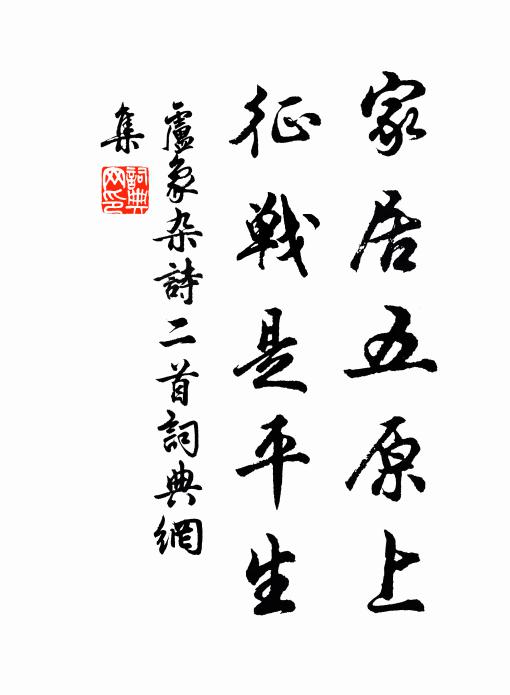 家居五原上
征戦是平生
盧象杂詩二首詞典網
集
詞典
网印